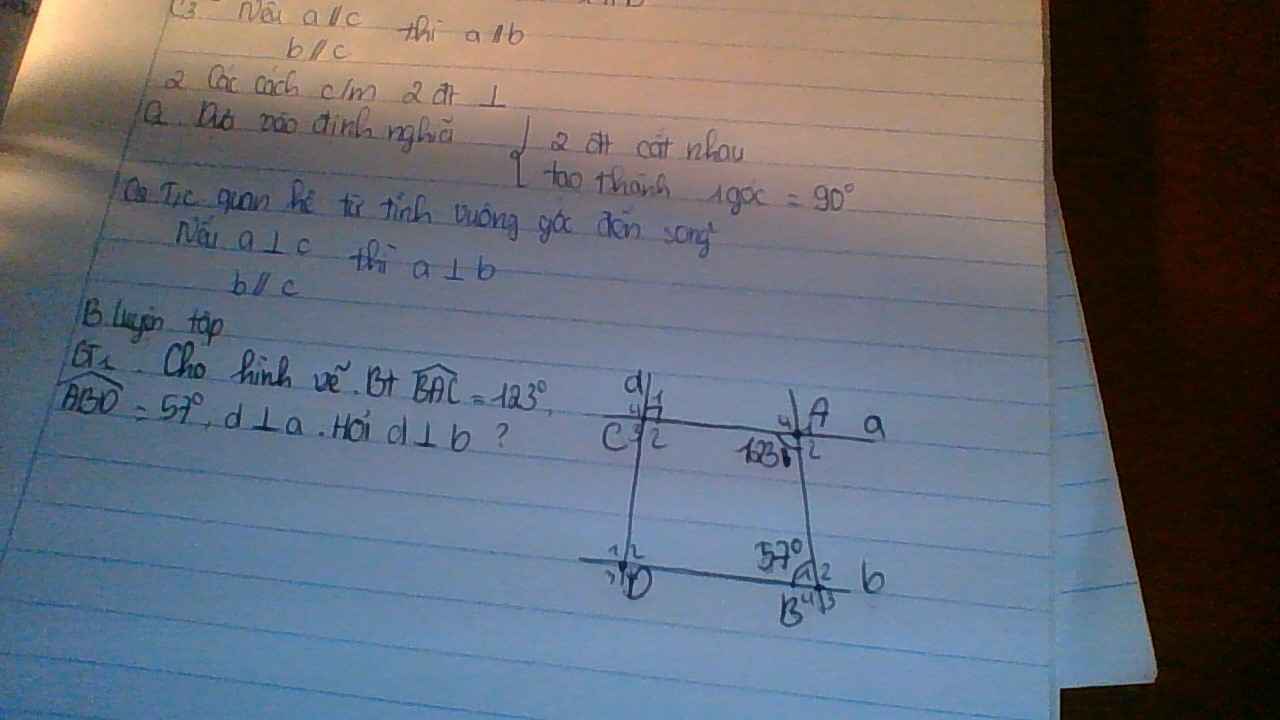 C3 Nếu a // c thì a // b
b // c
2 Các cách c/m 2 đt ⊥
vào định nghĩa { 2 đt cắt nhau
tạo thành 1 góc = 90°
T/c quan hệ từ tính vuông góc đến song²
Nếu a ⊥ c thì a ⊥ b
b // c
B. Luyện tập
Cho hình vẽ. Bt BAC = 123°,
ABD = 57°, d ⊥ a. Hỏi d ⊥ b ?
d 1 4 A a
C 3 2 123 1 2
1 2 57° 1 2 b
D B 4 3